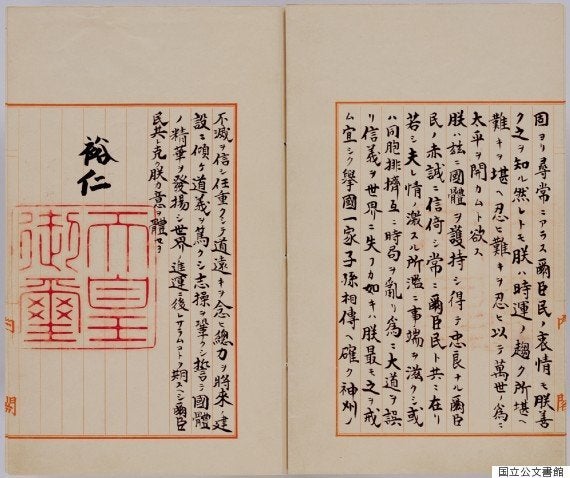 固ヨリ尋常ニアラス爾臣民ノ衷情モ朕善
ク之ヲ知ル然レトモ朕ハ時運ノ趨ク所堪ヘ
難キヲ堪ヘ忍ヒ難キヲ忍ヒ以テ萬世ノ爲ニ
太平ヲ開カムト欲ス
朕ハ玆ニ國體ヲ護持シ得テ忠良ナル爾臣
民ノ赤誠ニ信倚シ常ニ爾臣民ト共ニ在リ
若シ夫レ情ノ激スル所濫ニ事端ヲ滋クシ或
ハ同胞排擠互ニ時局ヲ亂リ爲ニ大道ヲ誤
リ信義ヲ世界ニ失フカ如キハ朕最モ之ヲ戒
ム宜シク擧國一家子孫相傳ヘ確ク神州ノ
不滅ヲ信シ任重クシテ道遠キヲ念ヒ總力ヲ將來ノ建
設ニ傾ケ道義ヲ篤クシ志操ヲ鞏クシ誓テ國體
ノ精華ヲ發揚シ世界ノ進運ニ後レサラムコトヲ期スヘシ爾臣
民其レ克ク朕カ意ヲ體セヨ
裕仁
天皇
御璽
国立公文書館